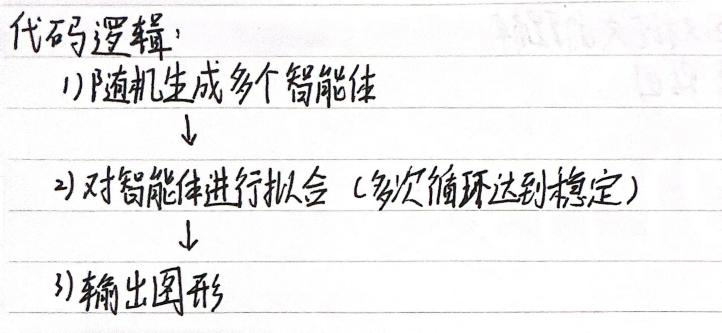 代码逻辑:
1)随机生成多个智能体
↓
2)对智能体进行拟合(多次循环达到稳定)
↓
3)输出图形